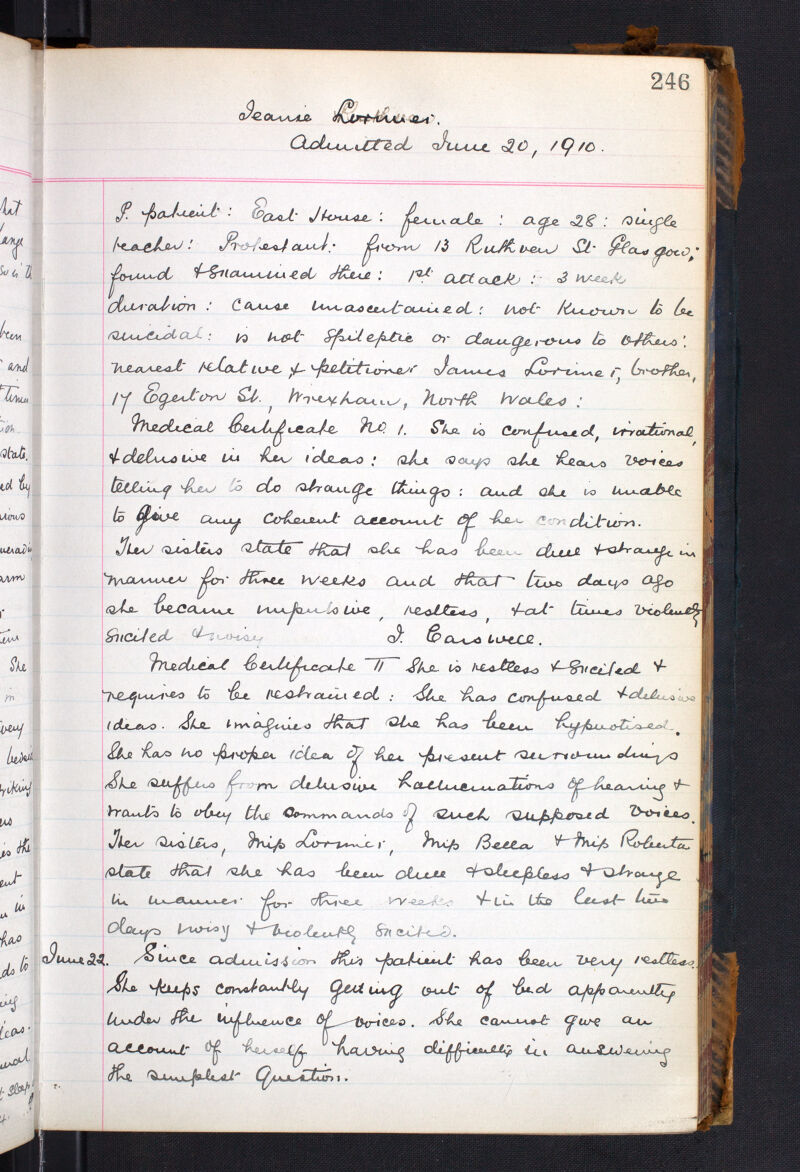 246
Jeanie Lorimer.
Admitted June 20, 1910.
P. patient: East House: female: age 28: single
teacher: Protestant: from 13 Ruthven St. Glasgow;
found & Examined there: 1st attack: 3 week
duration: cause unascertained: not known to be
suicidal: is not Epileptic or dangerous to others:
nearest relative & petitioner James Lorimer, brother,
17 Egerton St., Wrexham, North Wales:
Medical Certificate No 1. She is confused, irrational,
& delusive in her ideas: she says she hears voices
telling her to do strange things: and she is unable
to give any coherent account of her condition.
Her sisters state that she has been dull & strange in
manner for three weeks and that two days ago
she became impulsive, restless, & at times violently
Excited & noisy J. Carswell.
Medical Certificate II She is restless & Excited &
requires to be restrained: She has confused & delusive
ideas. She imagines that she has been hypnotised.
She has no proper idea of her present surroundings
She suffers from delusive hallucinations of hearing &
wants to obey the commands of such supposed voices.
Her sisters, Miss Lorimer, Miss Bella & Miss Roberta
state that she has been dull & sleepless & strange
in manner for three weeks & in the last two
days noisy & violently Excited.
June 22. Since admission this patient has been very restless.
She keeps constantly getting out of bed apparently
under the influence of voices. She cannot give an
account of herself having difficulty in answering
the simplest Question.